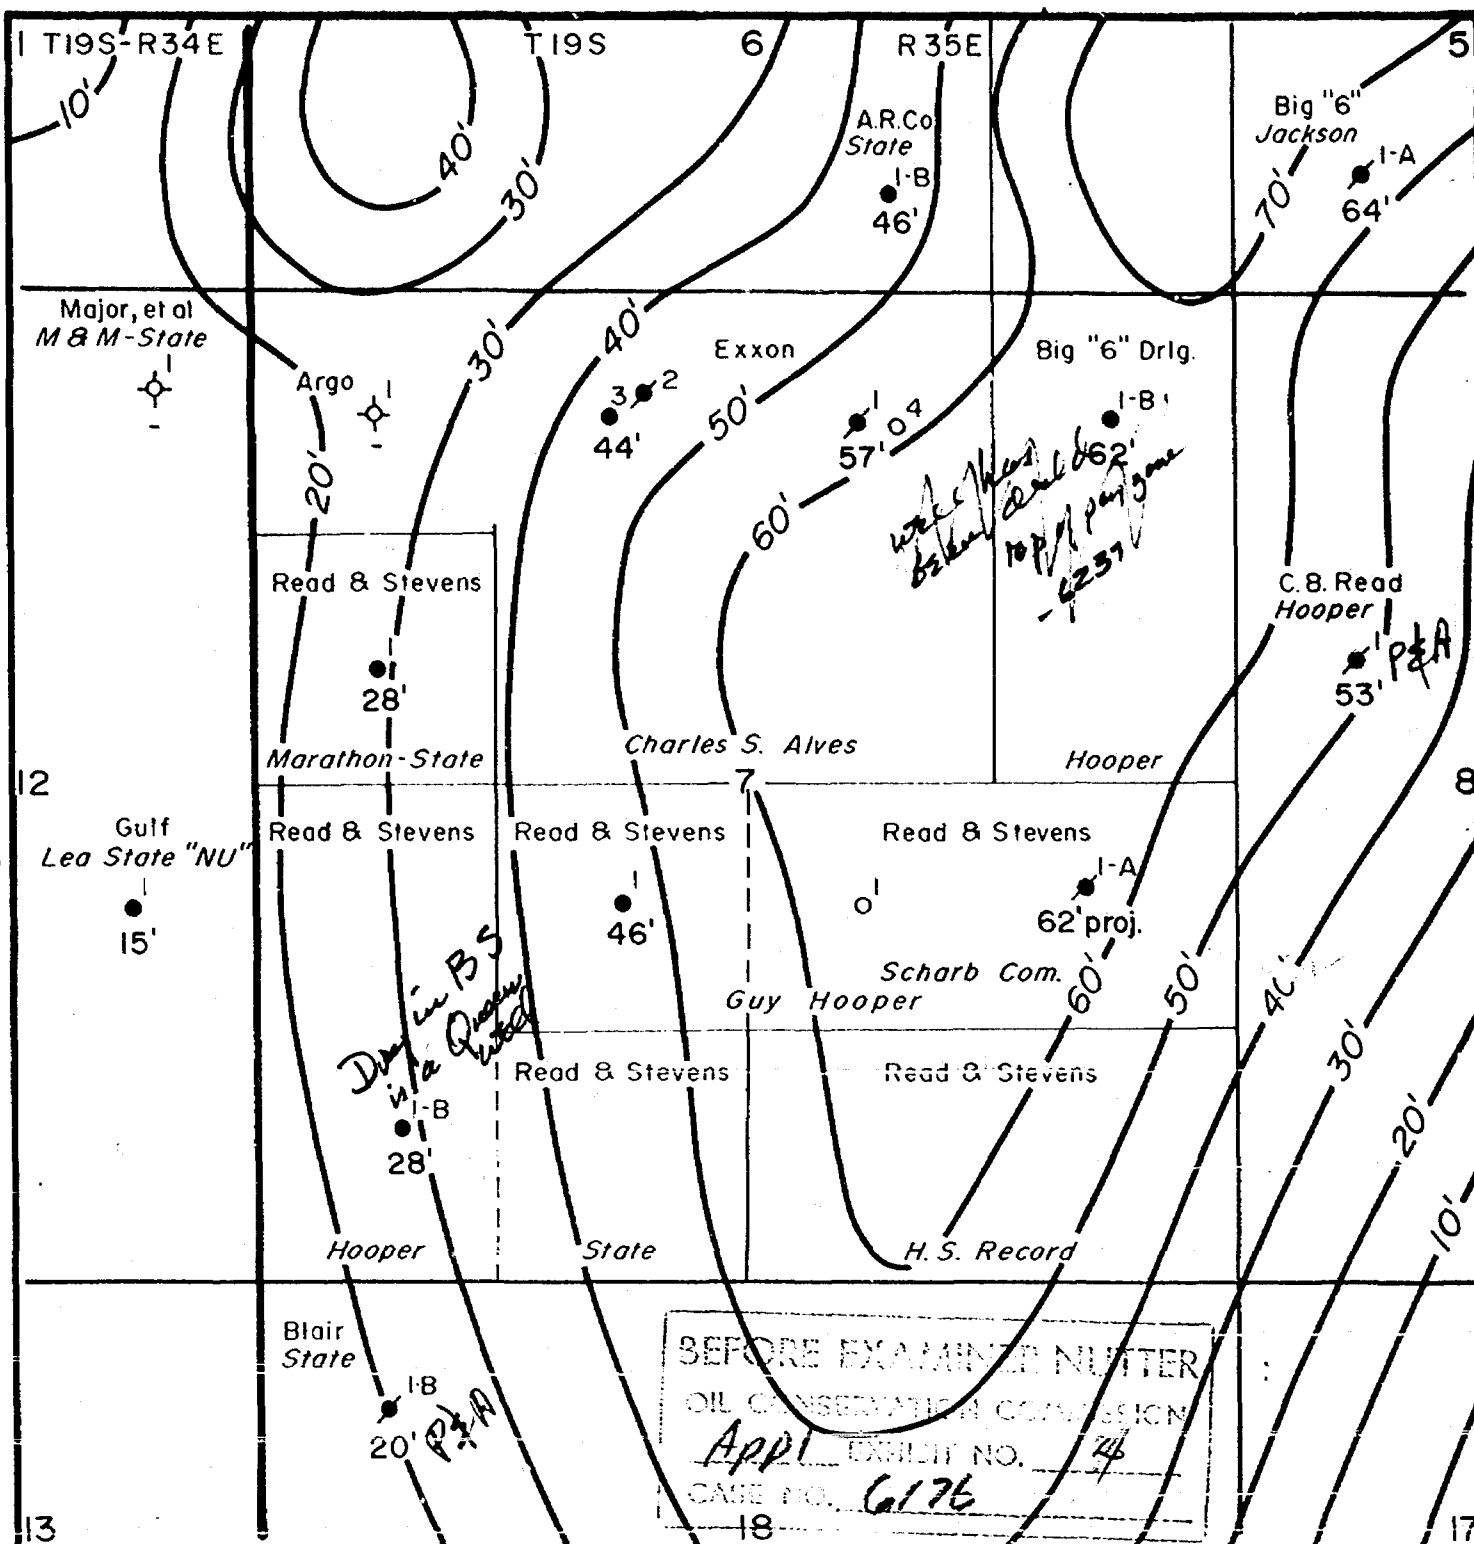 1 T19S-R34E T19S 6 R35E 5
10'
40'
30'
A.R.Co
State
1-B
46'
Big "6"
Jackson
1-A
64'
70'
Major, et al
M & M-State
1
-
Argo
1
-
30'
40'
Exxon
Big "6" Drlg.
3 2
44'
50'
1 4
57'
1-B
62'
20'
60'
top of pay zone
- 6237
Read & Stevens
1
28'
Marathon-State
Charles S. Alves
Hooper
C.B. Read
Hooper
1 P&A
53'
12 7 8
Gulf
Lea State "NU"
1
15'
Read & Stevens
Read & Stevens
Read & Stevens
1
46'
1
1-A
62' proj.
Scharb Com.
Guy Hooper
in B S
is a Queen
1-B
28'
60'
50'
40'
30'
20'
10'
Read & Stevens
Read & Stevens
Hooper
State
H.S. Record
Blair
State
1-B
20' P&A
BEFORE EXAMINER NUTTER
OIL CONSERVATION COMMISSION
Appl EXHIBIT NO.
CASE NO. 6176
13 18 17